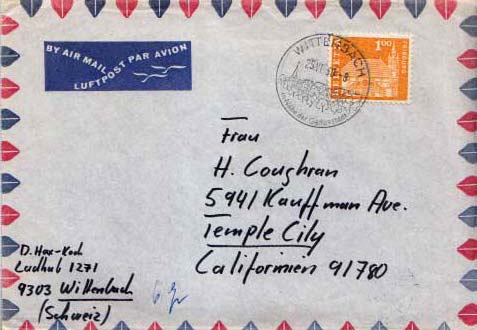 BY AIR MAIL PAR AVION
LUFTPOST
WITTENBACH
1.00
Frau
H. Coughran
5941 Kauffman Ave.
Temple City
Californien 91780
D. Hax-Koch
Ladhub 1271
9303 Wittenbach
(Schweiz)
6 gr